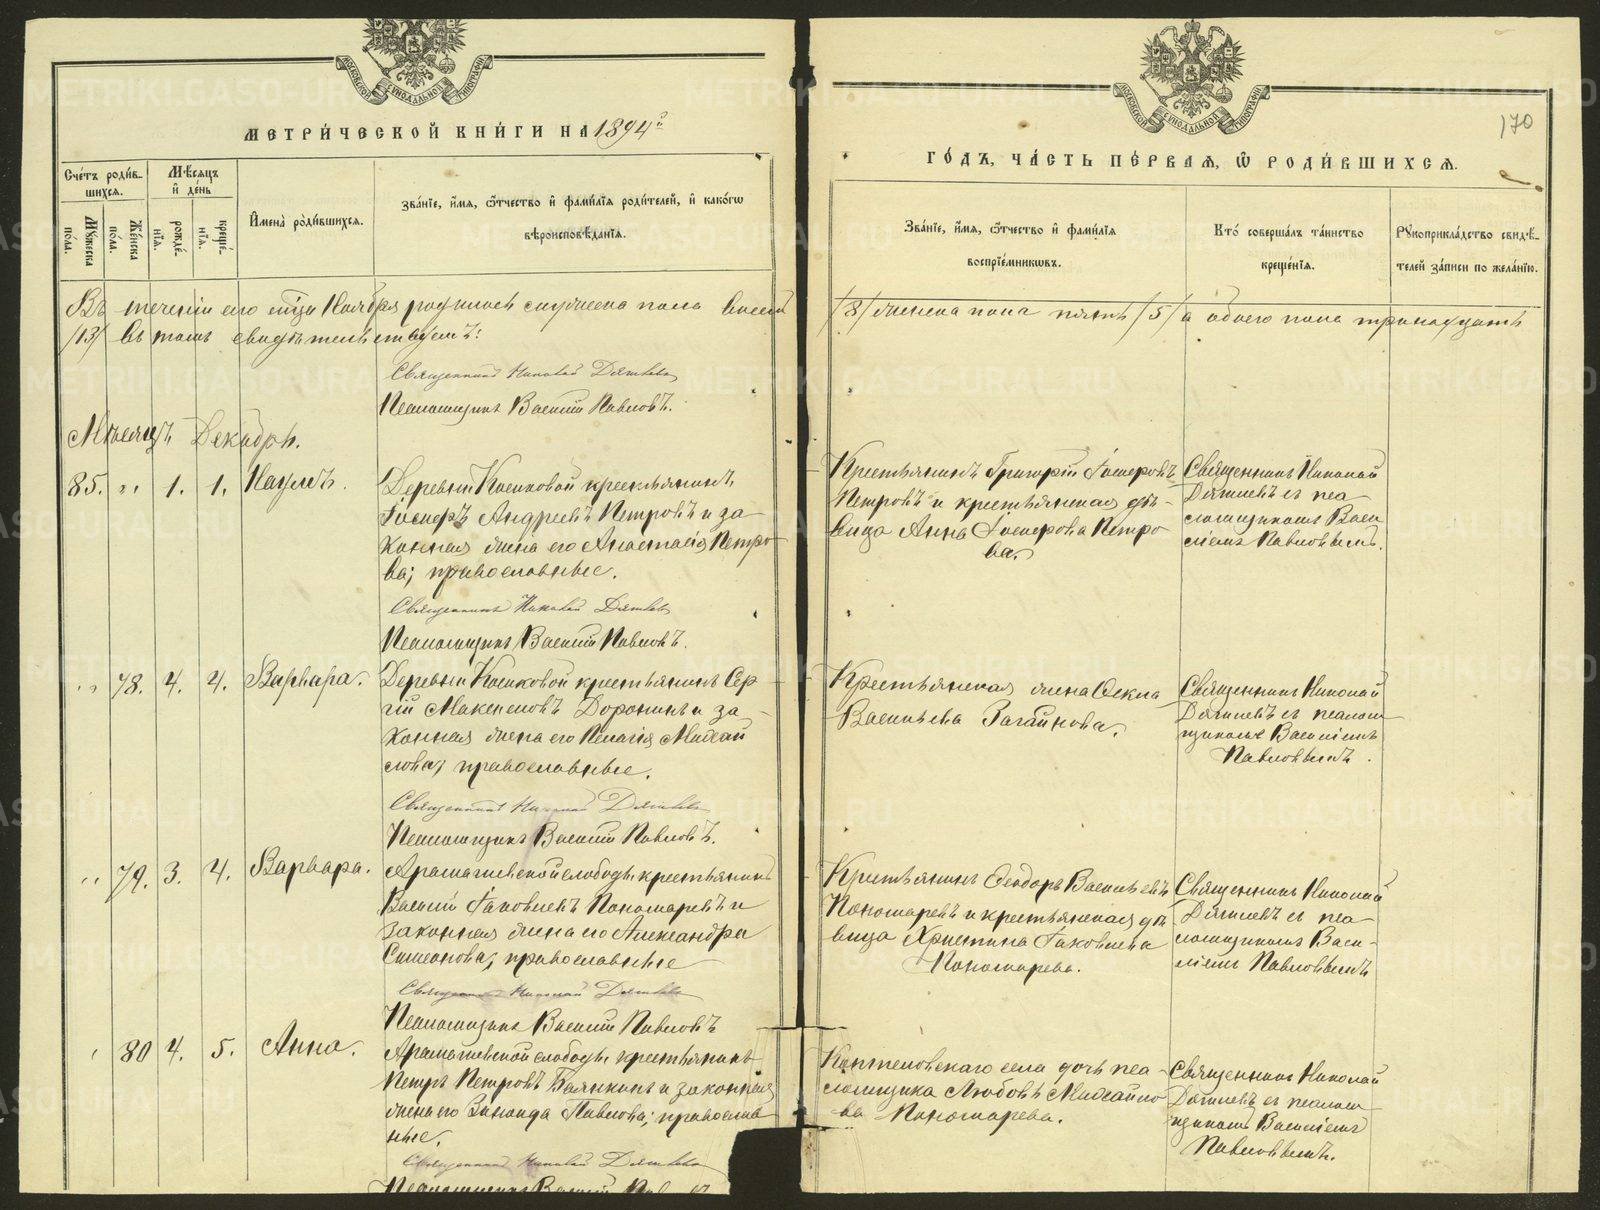 МЕТРИ́ЧЕСКОЙ КНИ́ГИ НА 1894й
Сче́тъ роди́в-
шихся.
Мѣ́сяцъ
и де́нь
Му́жеска
по́ла.
Же́нска
по́ла.
рожде́-
нїя.
креще́-
нїя.
И҆мена̀ роди́вшихся.
Зва́нїе, и҆́мя, ѻ҆́тчество и҆ фами́лїя роди́телей, и҆ како́гѡ
вѣроисповѣ́данїя.
Въ теченіи сего м҃ца Ноября родилось мужеска пола восемь
/13/ въ томъ свидѣтельствуемъ:
Священникъ Николай Дягилевъ
Псаломщикъ Василій Павловъ.
Мѣсяцъ Декабрь.
85. " 1. 1. Наумъ.
Деревни Косиковой крестьянинъ
Іосифъ Андреевъ Петровъ и за-
конная жена его Анастасія Петро-
ва; православные.
Священникъ Николай Дягилевъ
Псаломщикъ Василій Павловъ.
" 78. 4. 4. Варвара.
Деревни Косиковой крестьянинъ Сер-
гій Доронинъ и за-
конная жена его Пелагія Михай-
лова; православные.
Священникъ Николай Дягилевъ
Псаломщикъ Василій Павловъ.
" 79. 3. 4. Варвара.
Арамашевской слободы крестьянинъ
Василій Іаковлевъ Пономаревъ и
законная жена его Александра
Симеонова; православные
Священникъ Николай Дягилевъ
Псаломщикъ Василій Павловъ
" 80 4. 5. Анна.
Арамашевской слободы крестьянинъ
Петръ Петровъ и законная
жена его Зинаида Павлова; православ-
ные.
Священникъ Николай Дягилевъ
Псаломщикъ Василій Павловъ
170
ГО́ДЪ, ЧА́СТЬ ПЕ́РВАЯ, Ѡ҆ РОДИ́ВШИХСЯ.
Зва́нїе, и҆́мя, ѻ҆́тчество и҆ фами́лїя
воспрїе́мникѡвъ.
Кто̀ соверша́лъ та́инство
креще́нїя.
Рꙋкоприкла́дство свидѣ́-
телей за́писи по жела́нїю.
/8/ женска пола пять /5/ а обоего пола тринадцать
Крестьянинъ Григорій Іосифовъ
Петровъ и крестьянская дѣ-
вица Анна Іосифова Петро-
ва.
Священникъ Николай
Дягилевъ съ пса-
ломщикомъ Васи-
ліемъ Павловымъ.
Крестьянская жена Ѳекла
Васильева Загайнова.
Священникъ Николай
Дягилевъ съ псалом-
щикомъ Василіемъ
Павловымъ.
Крестьянинъ Ѳеодоръ Васильевъ
Пономаревъ и крестьянская дѣ-
вица Христина Іаковлева
Пономарева.
Священникъ Николай
Дягилевъ съ пса-
ломщикомъ Васи-
ліемъ Павловымъ
Коптеловскаго села дочь пса-
ломщика Любовь Михайло-
ва Пономарева.
Священникъ Николай
Дягилевъ съ псалом-
щикомъ Василіемъ
Павловымъ.